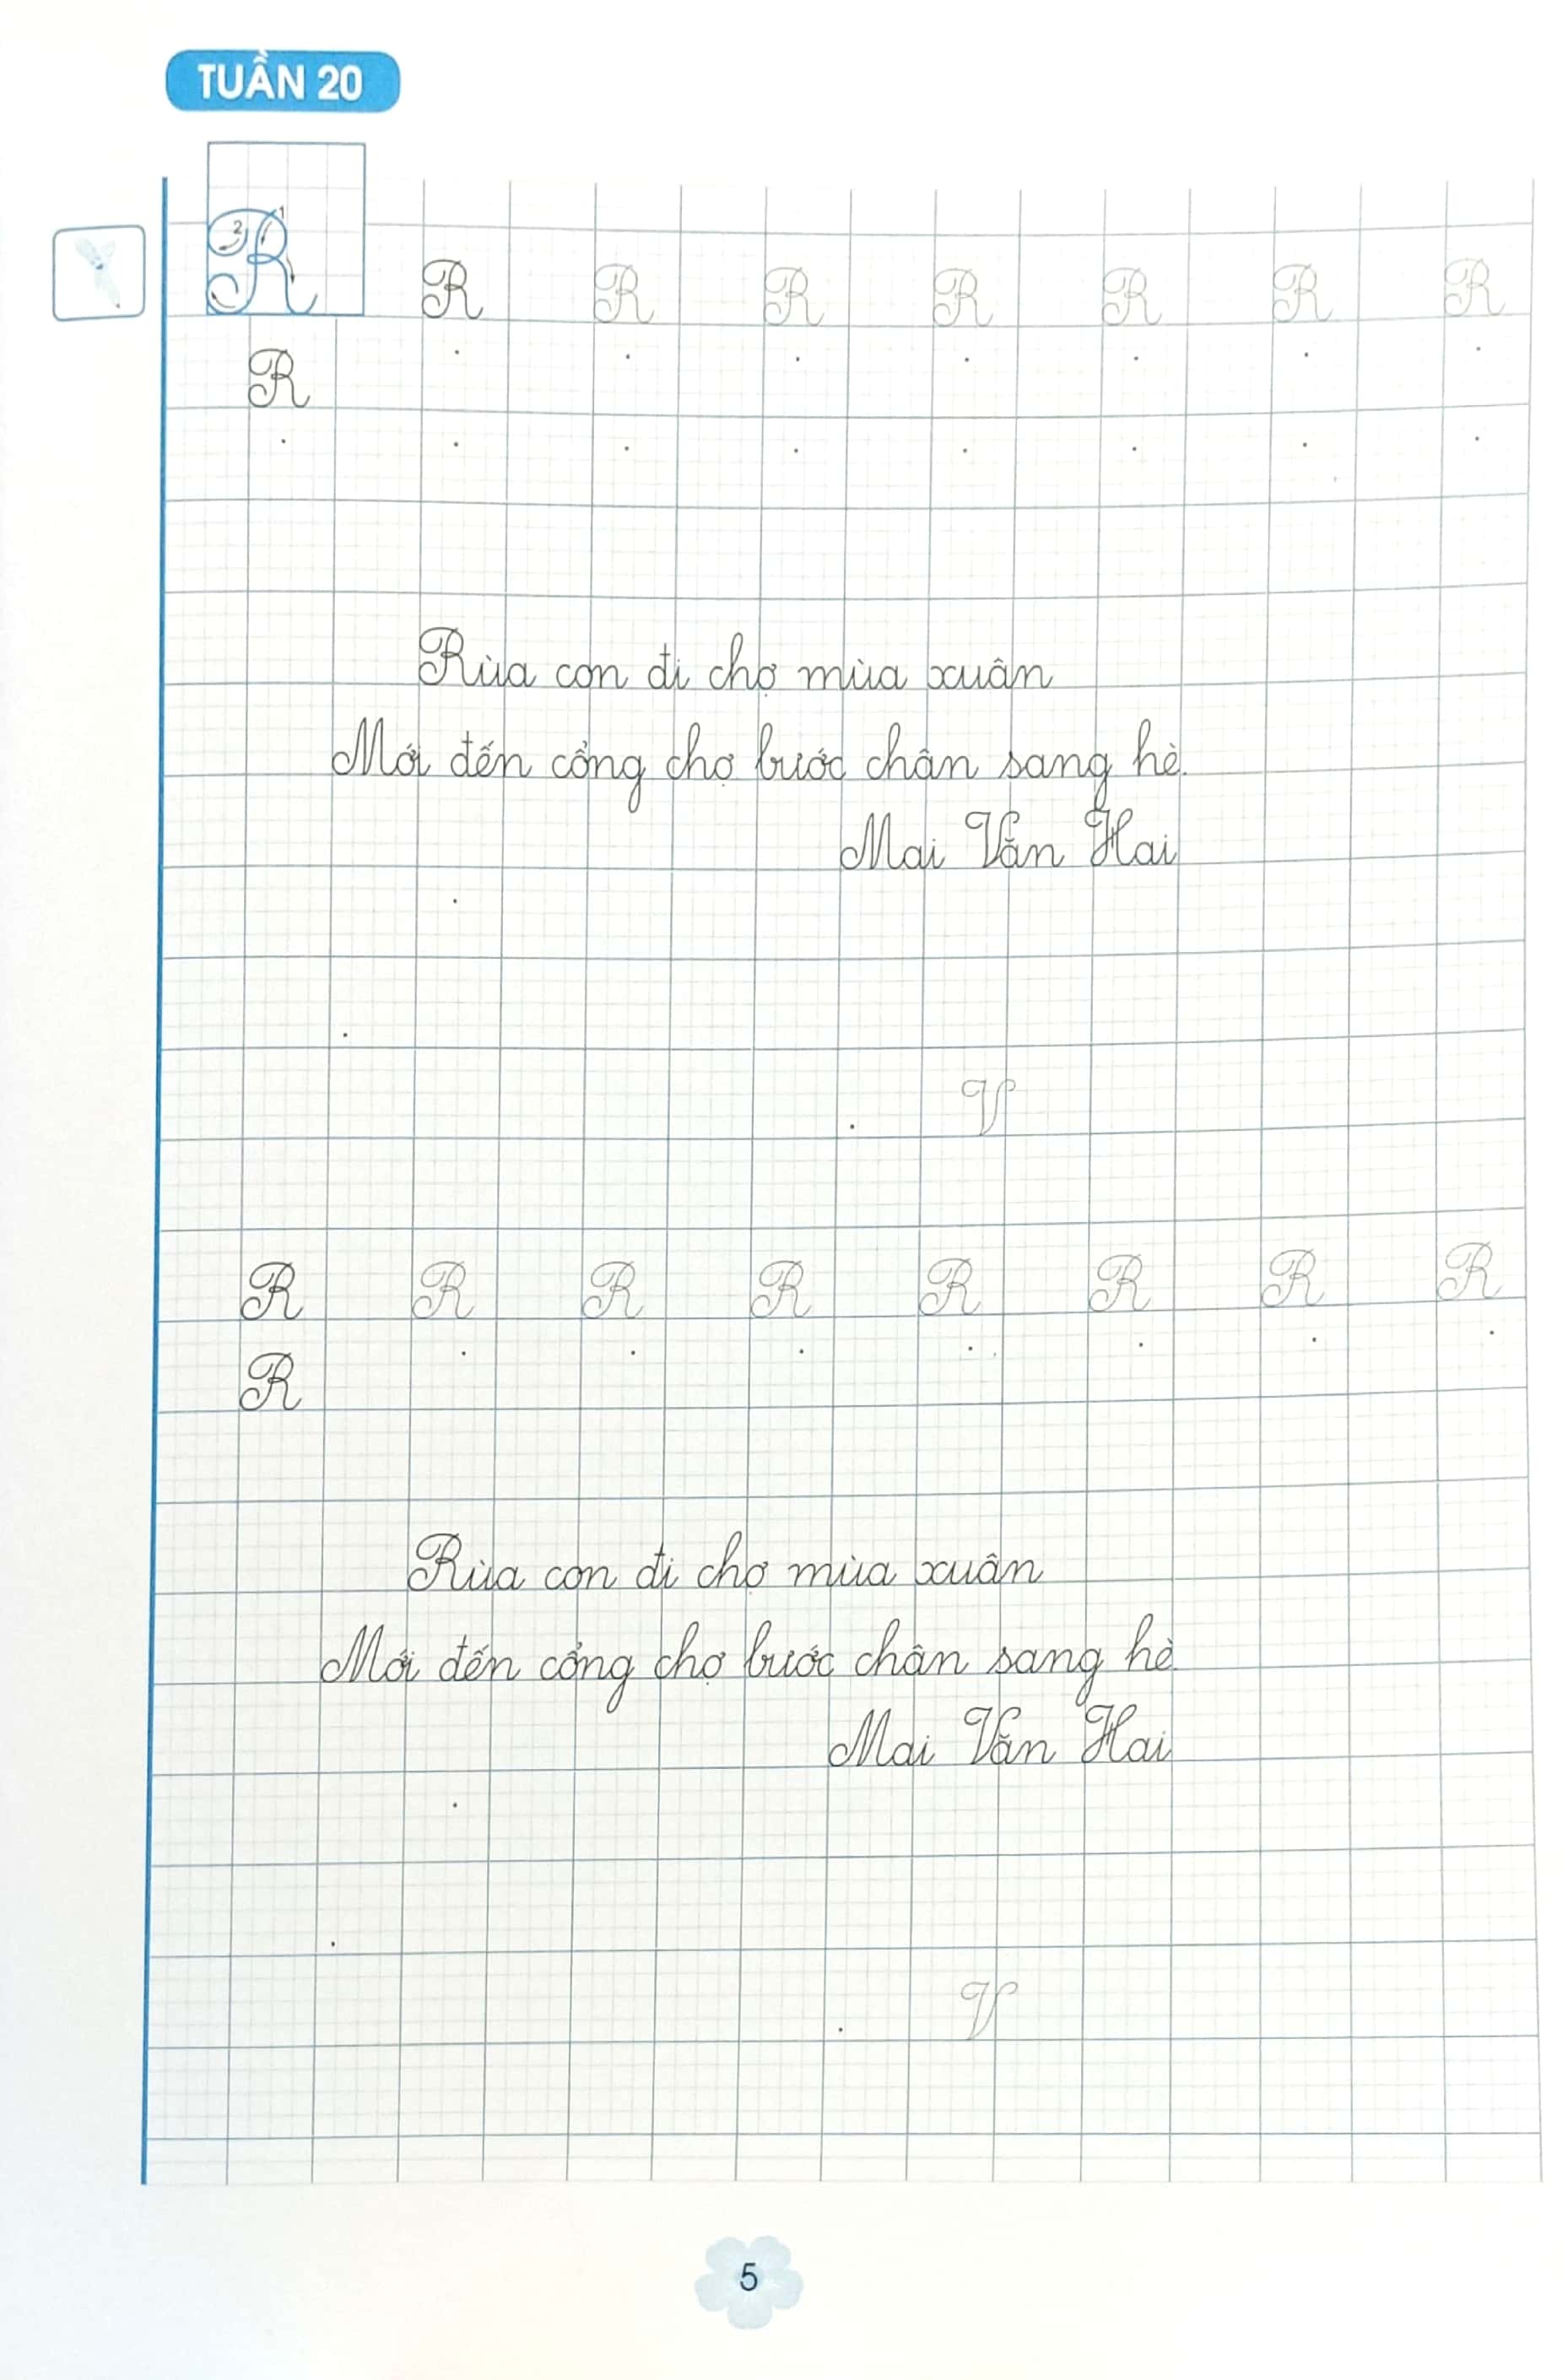 TUẦN 20
1
2
R R R R R R R
R
Rùa con đi chợ mùa xuân
Mới đến cổng chợ bước chân sang hè.
Mai Văn Hai
V
R R R R R R R R
R
Rùa con đi chợ mùa xuân
Mới đến cổng chợ bước chân sang hè.
Mai Văn Hai
V
5